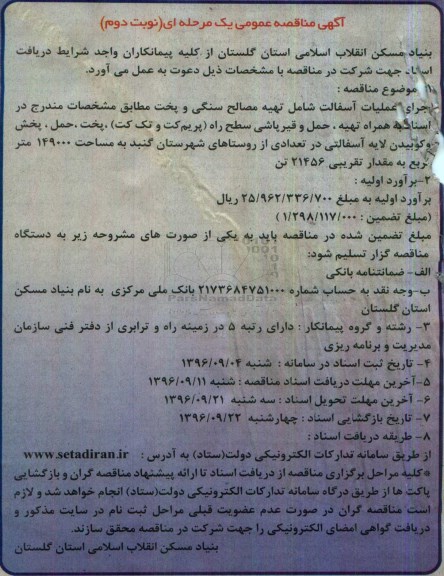 آگهی مناقصه عمومی یک مرحله ای(نوبت دوم)
بنیاد مسکن انقلاب اسلامی استان گلستان از کلیه پیمانکاران واجد شرایط دریافت
اسناد جهت شرکت در مناقصه با مشخصات ذیل دعوت به عمل می آورد.
موضوع مناقصه :
اجرای عملیات آسفالت شامل تهیه مصالح سنگی و پخت مطابق مشخصات مندرج در
اسناد به همراه تهیه ، حمل و قیرپاشی سطح راه (پریم کت و تک کت) ،پخت ،حمل ، پخش
وکوبیدن لایه آسفالتی در تعدادی از روستاهای شهرستان گنبد به مساحت ۱۴۹۰۰۰ متر
مربع به مقدار تقریبی ۲۱۴۵۶ تن
۲-برآورد اولیه :
برآورد اولیه به مبلغ ۲۵/۹۶۲/۳۳۶/۷۰۰ ریال
(مبلغ تضمین : ۱/۲۹۸/۱۱۷/۰۰۰ )
مبلغ تضمین شده در مناقصه باید به یکی از صورت های مشروحه زیر به دستگاه
مناقصه گزار تسلیم شود:
الف- ضمانتنامه بانکی
ب-وجه نقد به حساب شماره ۲۱۷۳۶۸۴۷۵۱۰۰۰ بانک ملی مرکزی به نام بنیاد مسکن
استان گلستان
ParsNamadData
۳- رشته و گروه پیمانکار : دارای رتبه ۵ در زمینه راه و ترابری از دفتر فنی سازمان
مدیریت و برنامه ریزی
۴- تاریخ ثبت اسناد در سامانه : شنبه ۱۳۹۶/۰۹/۰۴
۵-آخرین مهلت دریافت اسناد مناقصه : شنبه ۱۳۹۶/۰۹/۱۱
۶- آخرین مهلت تحویل اسناد : سه شنبه ۱۳۹۶/۰۹/۲۱
۷- تاریخ بازگشایی اسناد : چهارشنبه ۱۳۹۶/۰۹/۲۲
۸- طریقه دریافت اسناد :
از طریق سامانه تدارکات الکترونیکی دولت(ستاد) به آدرس : www.setadiran.ir
*کلیه مراحل برگزاری مناقصه از دریافت اسناد تا ارائه پیشنهاد مناقصه گران و بازگشایی
پاکت ها از طریق درگاه سامانه تدارکات الکترونیکی دولت(ستاد) انجام خواهد شد و لازم
است مناقصه گران در صورت عدم عضویت قبلی مراحل ثبت نام در سایت مذکور و
دریافت گواهی امضای الکترونیکی را جهت شرکت در مناقصه محقق سازند.
بنیاد مسکن انقلاب اسلامی استان گلستان